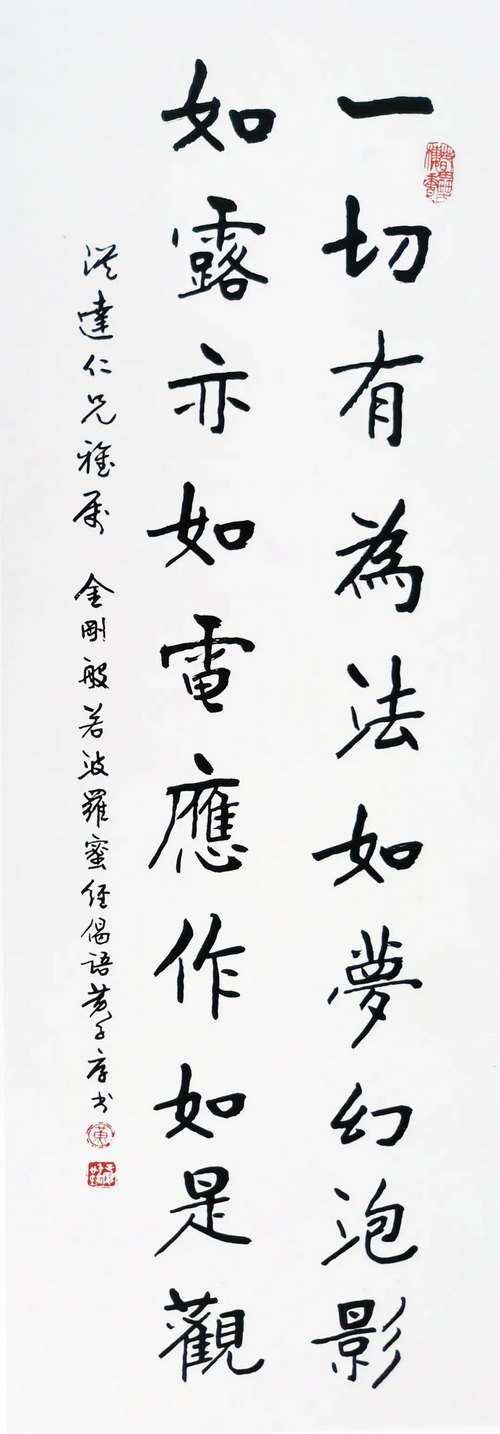 一切有為法如夢幻泡影
如露亦如電應作如是觀
達仁兄雅屬 金剛般若波羅蜜經偈語黃子厚书